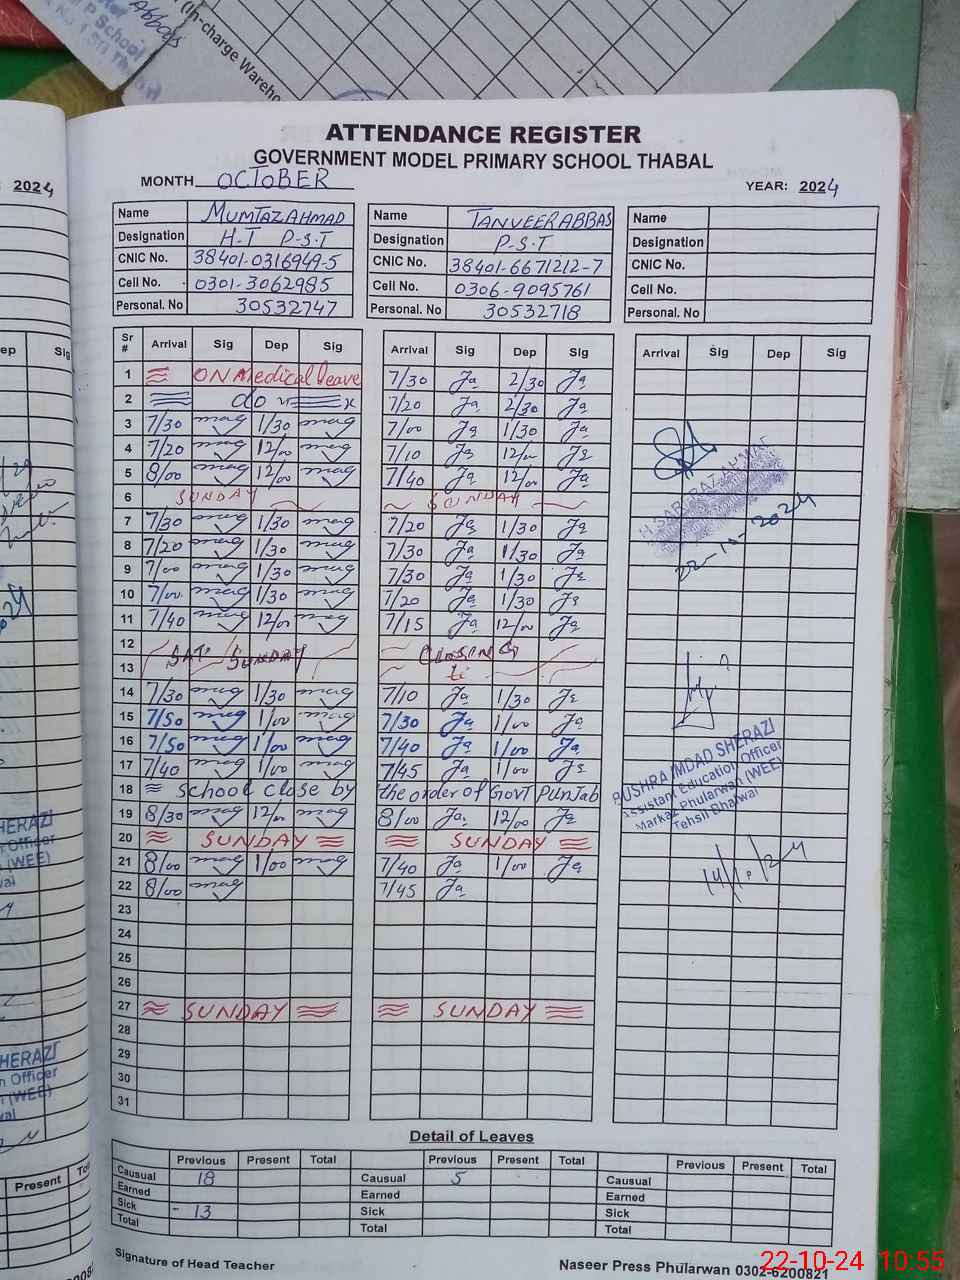 (In-charge Wareho
ATTENDANCE REGISTER
GOVERNMENT MODEL PRIMARY SCHOOL THABAL
MONTH OCTOBER YEAR: 2024
2024
Name MUMTAZ AHMAD Name TANVEER ABBAS Name
Designation H.T P.S.T Designation P.S.T Designation
CNIC No. 38401-0316949-5 CNIC No. 38401-6671212-7 CNIC No.
Cell No. 0301-3062985 Cell No. 0306-9095761 Cell No.
Personal. No 30532747 Personal. No 30532718 Personal. No
Sr # Arrival Sig Dep Sig Arrival Sig Dep Sig Arrival Sig Dep Sig
1 ON Medical leave 7/30 2/30
2 do 7/20 2/30
3 7/30 1/30 7/00 1/30
4 7/20 12/00 7/10 12/00
5 8/00 12/00 7/40 12/00
6 SUNDAY SUNDAY
7 7/30 1/30 7/20 1/30
8 7/20 1/30 7/30 1/30
9 7/00 1/30 7/30 1/30
10 7/00 1/30 7/20 1/30
11 7/40 12/00 7/15 12/00
12 SAT SUNDAY CLOSING
13
14 7/30 1/30 7/10 1/30
15 7/50 1/00 7/30 1/00
16 7/50 1/00 7/40 1/00
17 7/40 1/00 7/45 1/00
18 School close by the order of Govt Punjab
19 8/30 12/00 8/00 12/00
20 SUNDAY SUNDAY
21 8/00 1/00 7/40 1/00
22 8/00 7/45
23
24
25
26
27 SUNDAY SUNDAY
28
29
30
31
22-10-2024
BUSHRA IMDAD SHERAZI
Assistant Education Officer
Markaz Phularwan (WEE)
Tehsil Bhalwal
Detail of Leaves
Previous Present Total Previous Present Total Previous Present Total
Causual 18 Causual 5 Causual
Earned Earned Earned
Sick - 13 Sick Sick
Total Total Total
Signature of Head Teacher Naseer Press Phularwan 0302-6200821
22-10-24 10:55